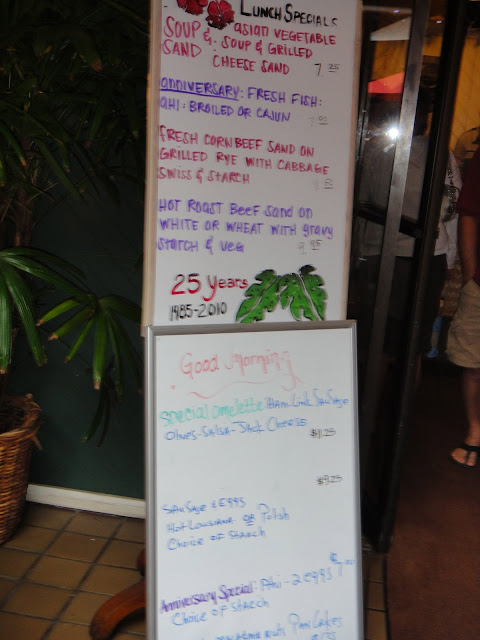 LUNCH SPECIALS
SOUP & : ASIAN VEGETABLE
SAND SOUP & GRILLED
CHEESE SAND
7.25
ANNIVERSARY: FRESH FISH:
AHI: BROILED OR CAJUN
FRESH CORNBEEF SAND ON
GRILLED RYE WITH CABBAGE
SWISS & STARCH
HOT ROAST BEEF SAND ON
WHITE OR WHEAT WITH GRAVY
STARCH & VEG
9.95
25 Years
1985-2010
Good Morning
Special omelette: Ham-Link Sausage
Olives-Salsa-Jack Cheese
$11.25
$9.25
Sausage & Eggs
Hot Louisiana OR Polish
Choice of Starch
Anniversary Special: Ahi - 2 eggs
Choice of Starch
nuts Pan Cakes